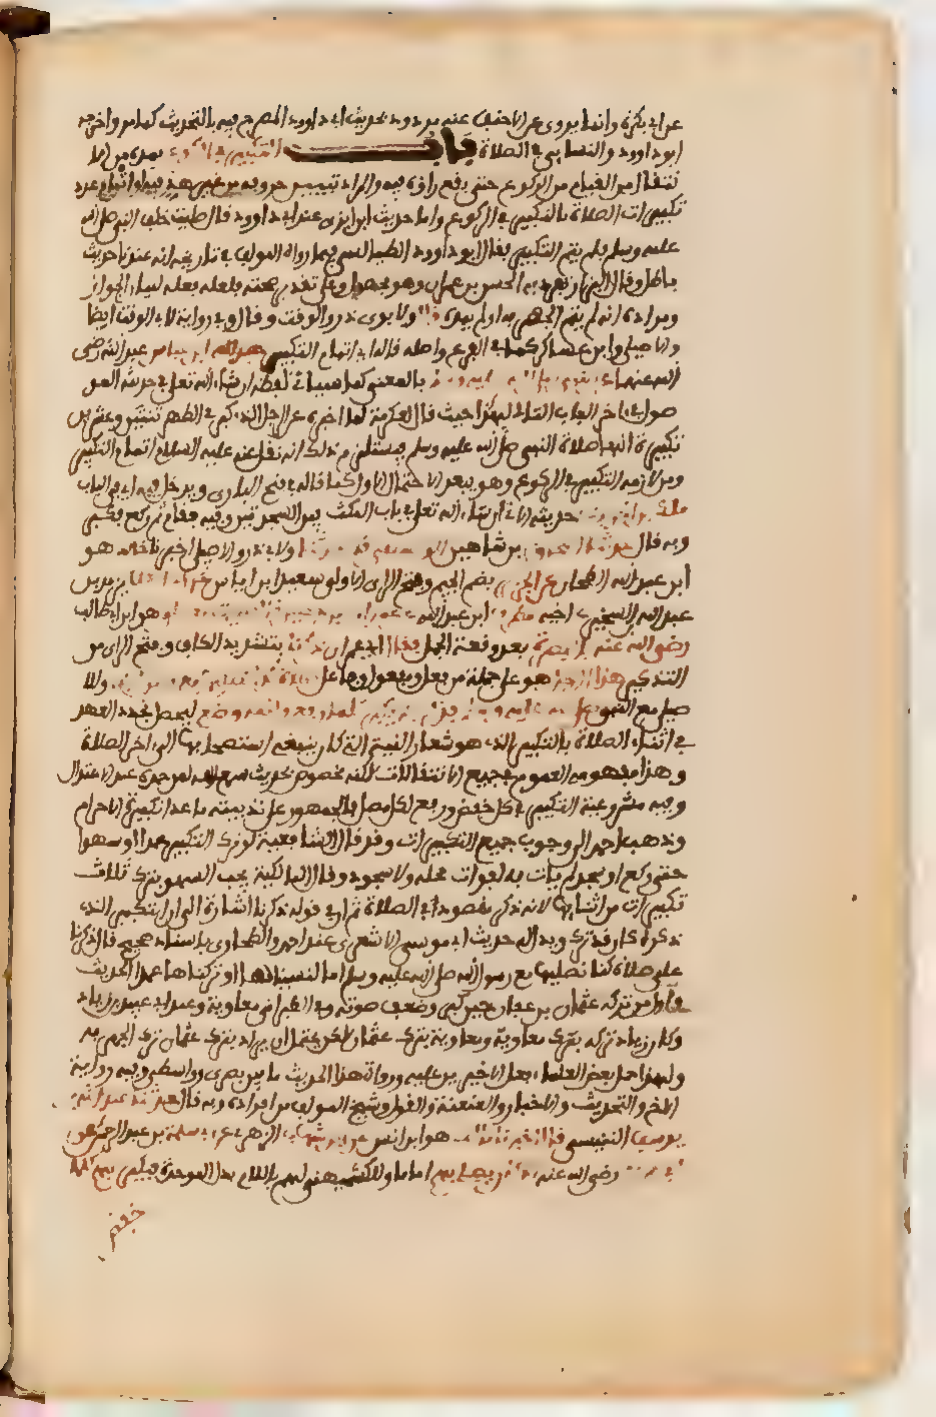 عن ابي بكرة وانما يروى عن الاحنف عنه مردود بحديث ابي داوود المصرح فيه بالتحديث كما مر واخرجه
ابو داوود والنسائي في الصلاة باب اتمام التكبير في الركوع بمده من الا
نتقال من القيام من الركوع حتى يقع راؤه فيه والمراد تبيين حروفه من غير هذ فيه او اتمام عدد
تكبيرات الصلاة بالتكبير في الركوع واما حديث ابن ابزى عند ابي داوود قال صليت خلف النبي صلى الله
عليه وسلم فلم يتم التكبير فقال ابو داوود الطيالسي فيما رواه المولف في تاريخه انه عندنا حديث
باطل وقال البزار تفرد به الحسن بن عمران وهو مجهول وعلى تقدير صحته فلعله فعله لبيان الجواز
ومراده انه لم يتم الجهر به او لم يمده قاله ولابوي ذر والوقت وقال وفي رواية لابي الوقت ايضا
والاصيلي وابن عساكر كما في الفرع واصله قاله اي اتمام التكبير ابن عباس عبد الله رضي
الله عنهما عن النبي صلى الله عليه وسلم بالمعنى كما سياتي لفظه ان شاء الله تعلى في حديثه المو
صول في اخر الباب التالي لهذا حيث قال لعكرمة لما اخبره عن الرجل الذي كبر في الظهر ثنتين وعشرين
تكبيرة انها صلاة النبي صلى الله عليه وسلم فيستلزم ذلك انه نقل عنه عليه السلام اتمام التكبير
ومن لازمه التكبير في الركوع وهو يبعد الاحتمال الاول كما قاله في فتح الباري ويدخل فيه اي في الباب
مالك بن الحويرث حديثه الاتي ان شاء الله تعلى في باب المكث بين السجدتين وفيه فقام ثم ركع فكبر
وبه قال حدثنا اسحق بن شاهين الواسطي قال حدثنا ولابي ذر والاصيلي اخبرنا خالد هو
ابن عبد الله الطحان عن الجريري بضم الجيم وفتح الراء الاولى سعيد ابن اياس عن ابي العلا يزيد بن
عبد الله بن الشخير عن اخيه مطرف ابن عبد الله عن عمران بن حصين قال صلى مع علي هو ابن ابي طالب
رضي الله عنه بالبصرة بعد وقعة الجمل فقال اي عمران ذكرنا بتشديد الكاف وفتح الراء من
التذكير هذا الرجل هو علي جملة من فعل ومفعول وفاعل صلاة كنا نصليها مع رسول الله وللا
صيلي مع النبي صلى الله عليه وسلم فذكر انه كان يكبر كلما رفع وكلما وضع ليحصل تجدد العهد
في اثناء الصلاة بالتكبير الذي هو شعار النية التي كان ينبغي استصحابها الى اخر الصلاة
وهذا مفهومه العموم في جميع الانتقالات لكنه مخصوص بحديث سمع الله لمن حمده عند الاعتدال
وفيه مشروعية التكبير في كل خفض ورفع لكل مصل فالجمهور على ندبيته ما عدا تكبيرة الاحرام
وذهب احمد الى وجوب جميع التكبيرات وقد قال الشافعية لو ترك التكبير عمدا او سهوا
حتى ركع او سجد لم يات به لفوات محله ولا سجود وقال المالكية يجب السجود بترك ثلاث
تكبيرات من اثنائها لانه ذكر مقصود في الصلاة ثم ان في قوله ذكرنا اشارة الى ان التكبير الذي
ذكره كان قد ترك ويدل له حديث ابي موسى الاشعري عند احمد والطحاوي باسناد صحيح قال ذكرنا
علي صلاة كنا نصليها مع رسول الله صلى الله عليه وسلم اما نسيناها او تركناها عمدا الحديث
واول من تركه عثمان بن عفان حين كبر وضعف صوته وفي الطبراني معاوية وعند ابي عبيد زياد
وكان زياد تركه بترك معاوية ومعاوية بترك عثمان لكن يحتمل ان يراد بترك عثمان ترك الجهر به
ولهذا حمل بعض العلماء فعل الاخيرين عليه ورواة هذا الحديث ما بين بصري وواسطي وفيه رواية
الاخ والتحديث والاخبار والعنعنة والقول وشيخ المولف من افراده وبه قال حدثنا عبد الله بن
يوسف التنيسي قال اخبرنا مالك هو ابن انس عن ابن شهاب الزهري عن ابي سلمة بن عبد الرحمن عن
ابي هريرة رضي الله عنه انه كان يصلي بهم اماما وللكشميهني لهم باللام بدل الموحدة فيكبر بهم كلما
خفض